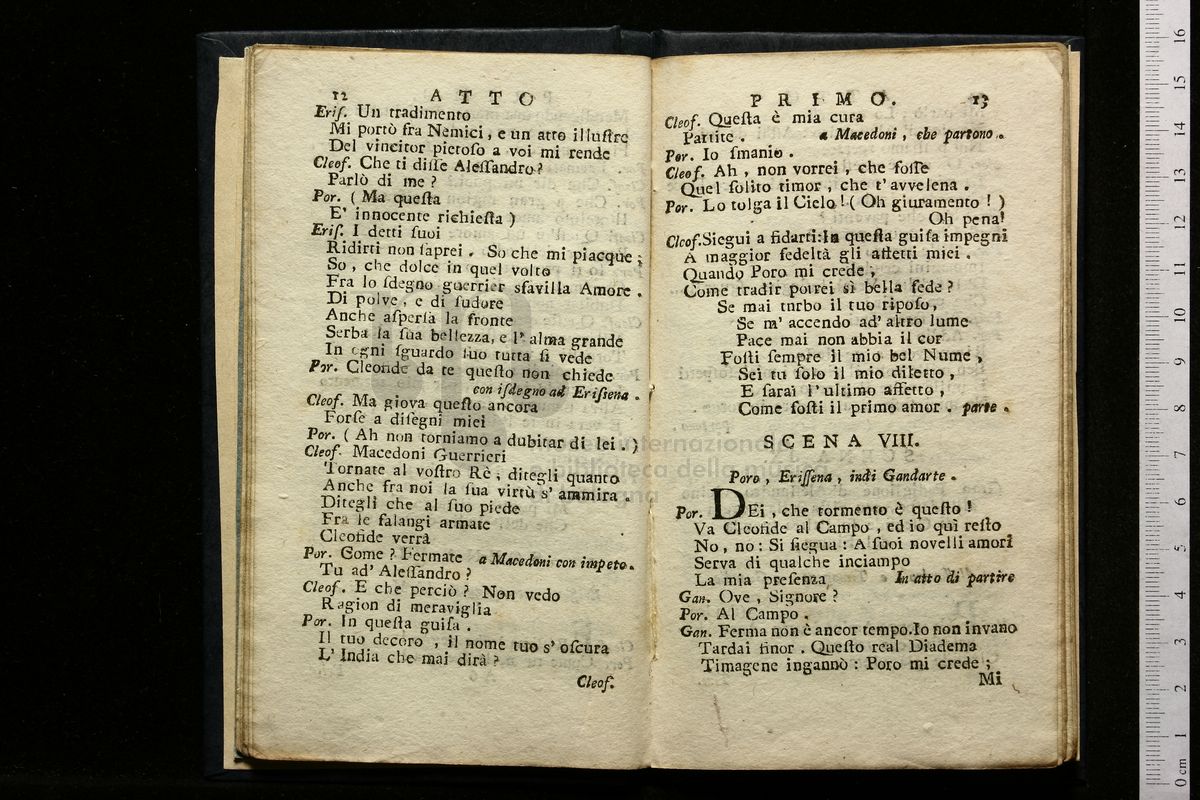 12 ATTO
Eriſ. Un tradimento
Mi portò fra Nemici, e un atto illuſtre
Del vincitor pietoſo a voi mi rende
Cleoſ. Che ti diſſe Aleſſandro?
Parlò di me?
Por. (Ma queſta
E' innocente richieſta)
Eriſ. I detti ſuoi
Ridirti non ſaprei. So che mi piacque;
So, che dolce in quel volto
Fra lo ſdegno guerrier sfavilla Amore.
Di polve, e di ſudore
Anche aſperſa la fronte
Serba la ſua bellezza, e l' alma grande
In ogni ſguardo ſuo tutta ſi vede
Por. Cleonde da te queſto non chiede
con iſdegno ad Eriſſena.
Cleoſ. Ma giova queſto ancora
Forſe a diſegni miei
Por. (Ah non torniamo a dubitar di lei.)
Cleof. Macedoni Guerrieri
Tornate al voſtro Rè, ditegli quanto
Anche fra noi la ſua virtù s' ammira.
Ditegli che al ſuo piede
Fra le falangi armate
Cleofide verrà
Por. Come? Fermate a Macedoni con impeto.
Tu ad' Aleſſandro?
Cleoſ. E che perciò? Non vedo
Ragion di meraviglia
Por. In queſta guiſa.
Il tuo decoro, il nome tuo s' oſcura
L' India che mai dirà?
Cleof.
PRIMO. 13
Cleof. Queſta è mia cura
Partite. a Macedoni, che partono.
Por. Io ſmanio.
Cleof. Ah, non vorrei, che foſſe
Quel ſolito timor, che t' avvelena.
Por. Lo tolga il Cielo! (Oh giuramento!)
Oh pena!
Cleof. Siegui a fidarti: In queſta guiſa impegni
A maggior fedeltà gli affetti miei.
Quando Poro mi crede,
Come tradir potrei sì bella fede?
Se mai turbo il tuo ripoſo,
Se m' accendo ad' altro lume
Pace mai non abbia il cor
Foſti ſempre il mio bel Nume,
Sei tu ſolo il mio diletto,
E ſarai l' ultimo affetto,
Come foſti il primo amor. parte.
SCENA VIII.
Poro, Eriſſena, indi Gandarte.
Por. DEi, che tormento è queſto!
Va Cleofide al Campo, ed io quì reſto
No, no: Si ſiegua: A ſuoi novelli amori
Serva di qualche inciampo
La mia preſenza In atto di partire
Gan. Ove, Signore?
Por. Al Campo.
Gan. Ferma non è ancor tempo. Io non invano
Tardai finor. Queſto real Diadema
Timagene ingannò: Poro mi crede;
Mi
internazionale
biblioteca della musica
0 cm 1 2 3 4 5 6 7 8 9 10 11 12 13 14 15 16